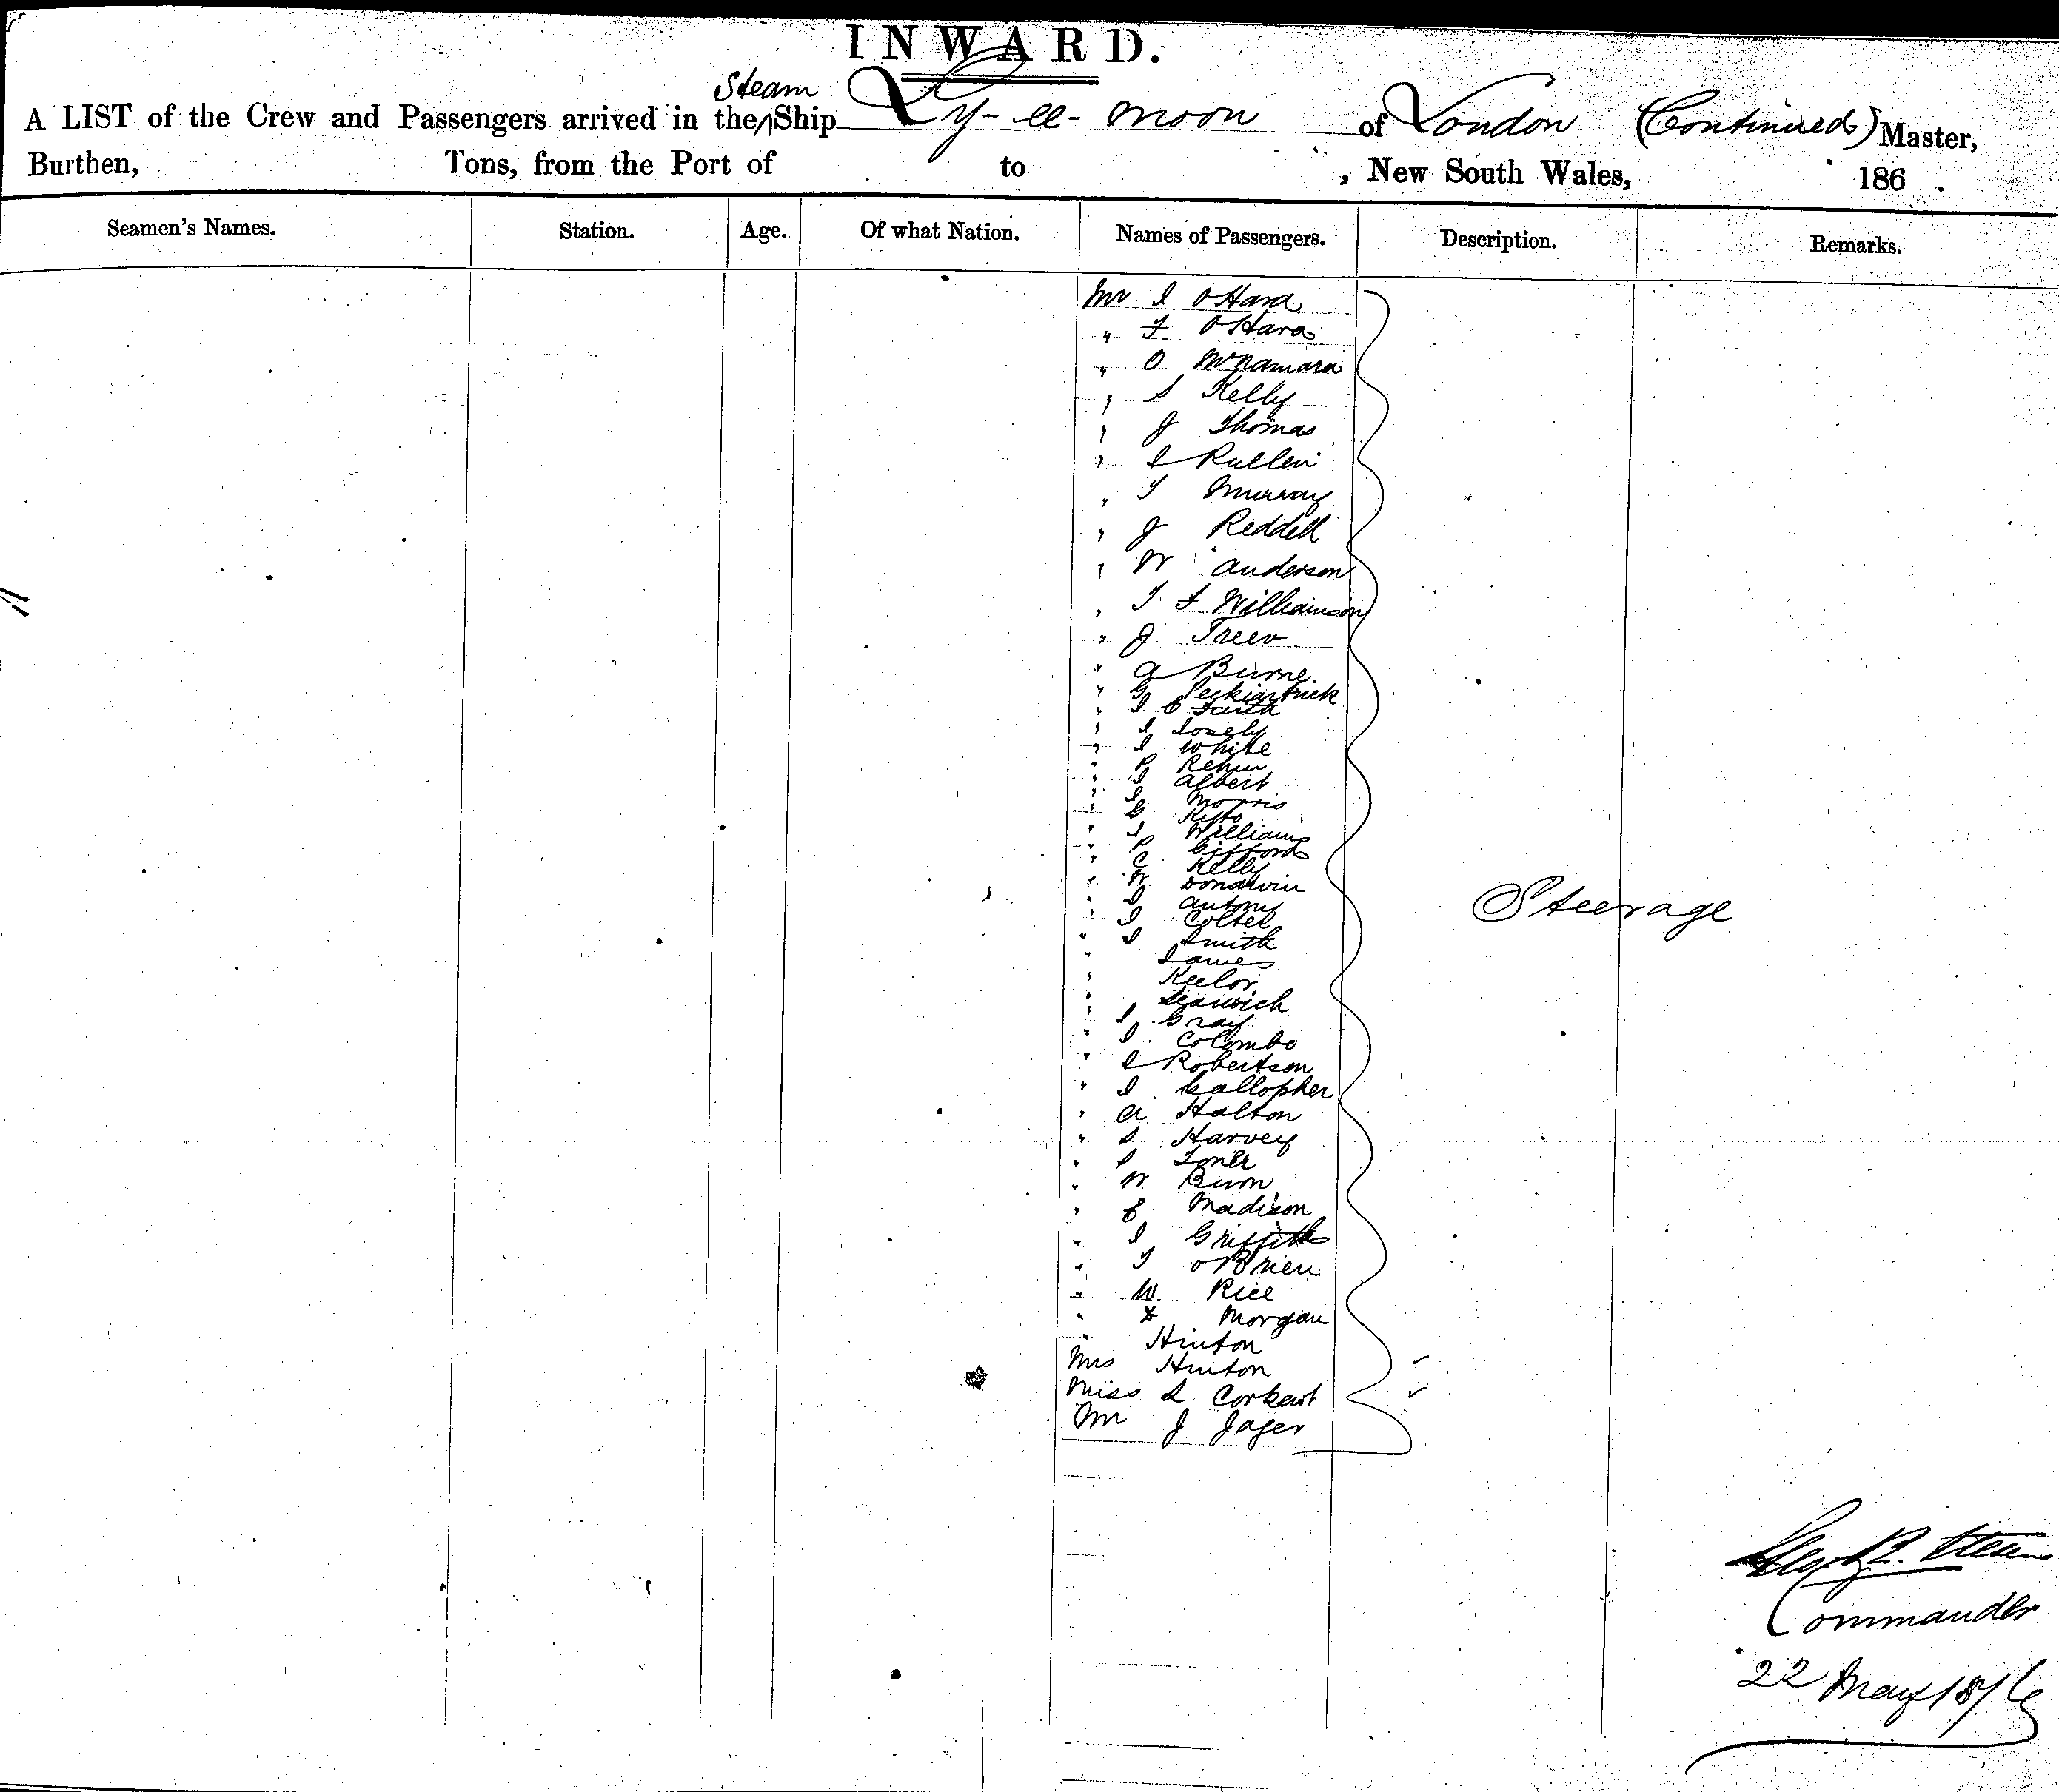 INWARD.
Steam
A LIST of the Crew and Passengers arrived in the ^ Ship Ly-ee-moon of London (Continued) Master,
Burthen, Tons, from the Port of to , New South Wales, 186 .
Seamen's Names. Station. Age. Of what Nation. Names of Passengers. Description. Remarks.
Mr I O'Hara
" F O'Hara
" O McNamara
" S Kelly
" J Thomas
" I Pullen
" T Murray
" J Reddell
" W Anderson
" T F Williamson
" J Treev
" A Burne
" G
" I C
" I Losely
" I White
" P
" I Albert
" I Morris
" G Kitto
" I Williams
" P Gifford
" C Kelly
" W Donawin
" I Antony
" I Coltel
" I Smith
" James
" Keelor
"
" I Gray
" I Colombo
" I Robertson
" I Gallopher
" A Halton
" S Harvey
" I
" W Burn
" E Madison
" I Griffith
" T O'Brien
" W Rice
" Morgan
" Hinton
Mrs Hinton
Miss L
Mr J Jager
Steerage
Commander
22 May 1876